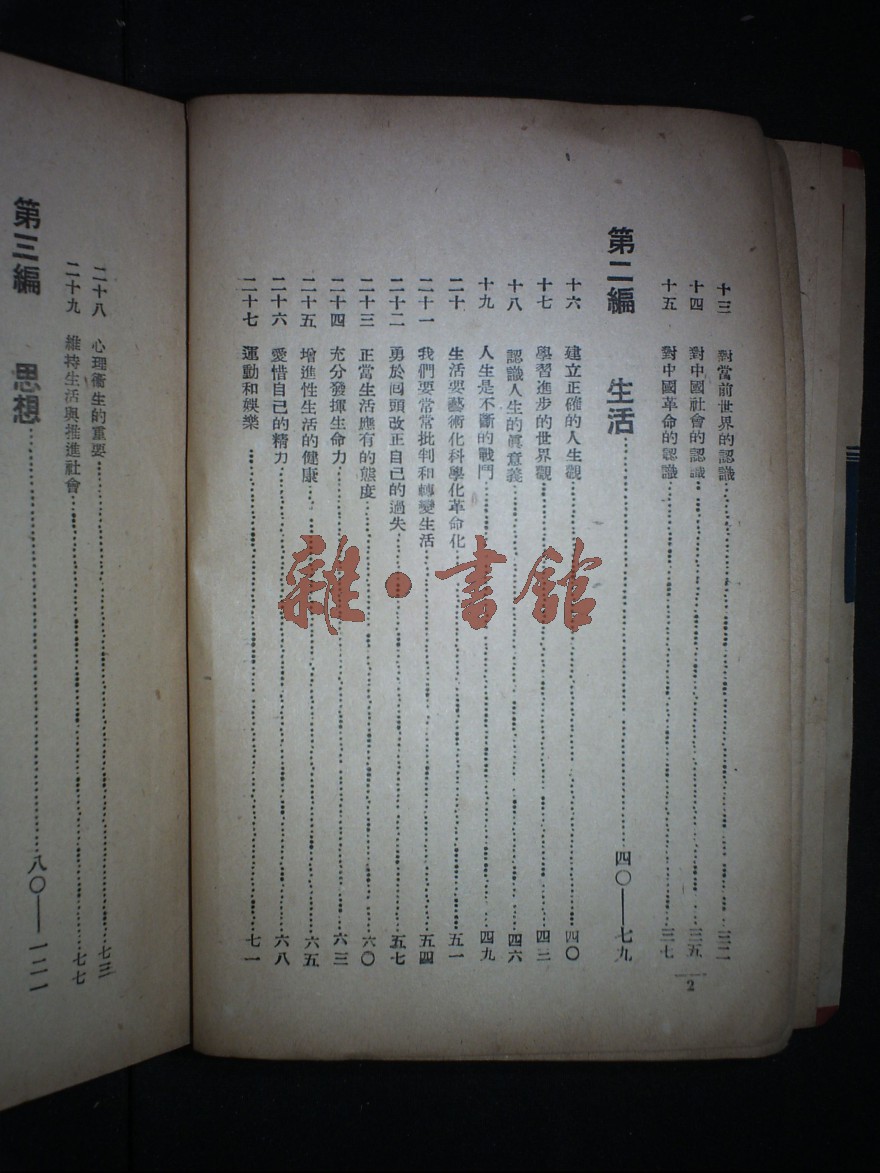 十三 對當前世界的認識……三二
十四 對中國社會的認識……三五
十五 對中國革命的認識……三七
第二編 生活……四〇——七九
十六 建立正確的人生觀……四〇
十七 學習進步的世界觀……四三
十八 認識人生的眞意義……四六
十九 人生是不斷的戰鬥……四九
二十 生活要藝術化科學化革命化……五一
二十一 我們要常常批判和轉變生活……五四
二十二 勇於囘頭改正自己的過失……五七
二十三 正當生活應有的態度……六〇
二十四 充分發揮生命力……六三
二十五 增進性生活的健康……六五
二十六 愛惜自己的精力……六八
二十七 運動和娛樂……七一
2
二十八 心理衞生的重要……七三
二十九 維持生活與推進社會……七七
第三編 思想……八〇——一二一
雜·書館